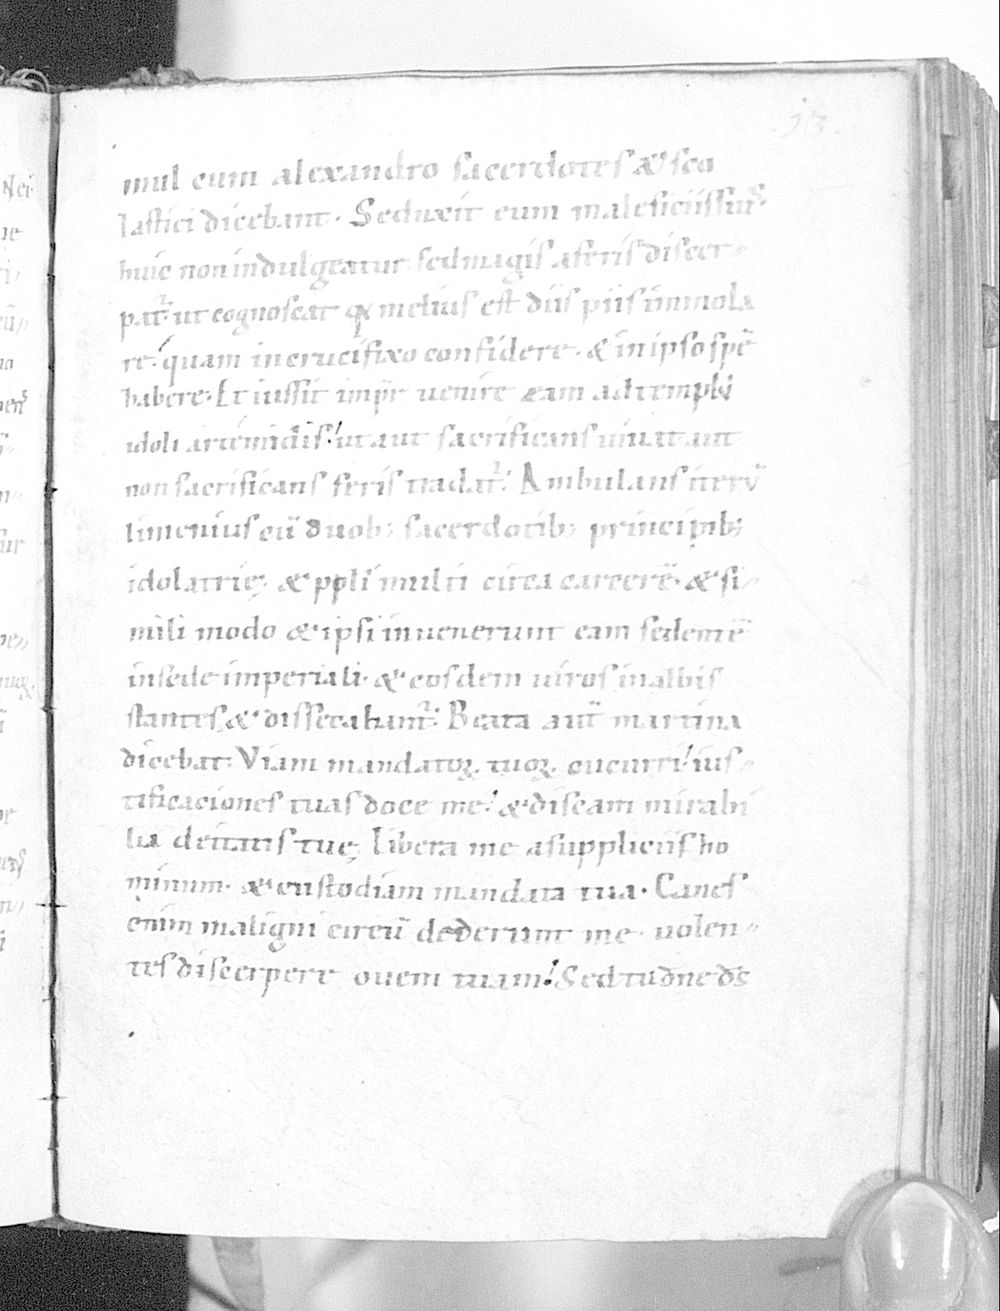 13.
mul cum alexandro sacerdotes & sco
lastici dicebant. Seduxit eum maleficiis suis.
huic non indulgeatur sed magis a feris discer-
pat̄ ut cognoscat qꝫ melius est diis piis immola
re. quam in crucifixo confidere. & in ipso spē
habere. Et iussit impr̄ uenire eam ad templū
idoli artemidis. ut aut sacrificans uiuat aut
non sacrificans feris tradat̄. Ambulans iterū
limenius cū duob; sacerdotib; principib;
idolatrię. & ppl̄i multi circa carcerē. & si-
mili modo & ipsi inuenerunt eam sedentē
in sede imperiali. & eosdem uiros in albis
stantes, & dissecabant̄. Beata aut̄ martina
dicebat. Viam mandatoꝝ tuoꝝ cucurri. ius-
tificaciones tuas doce me. & discam mirabi
lia deitatis tuę. Libera me a suppliciis ho
minum. & custodiam mandata tua. Canes
enim maligni circū dederunt me. uolen-
tes discerpere ouem tuam. Sed tu dn̄e ds̄